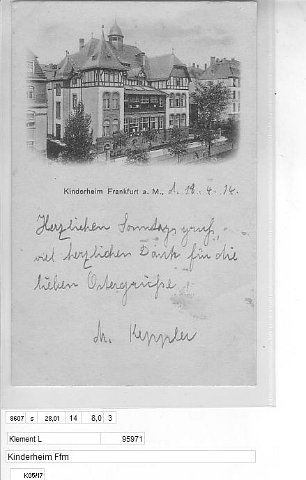 Kinderheim Frankfurt a. M., d. 12. 4. 14.
Herzlichen Sonntagsgruß,
viel herzlichen Dank für die
lieben Ostergrüße
M. Keppler
8607 s 28,01 14 8,0 3
Klement L 95971
Kinderheim Ffm
K05/I7